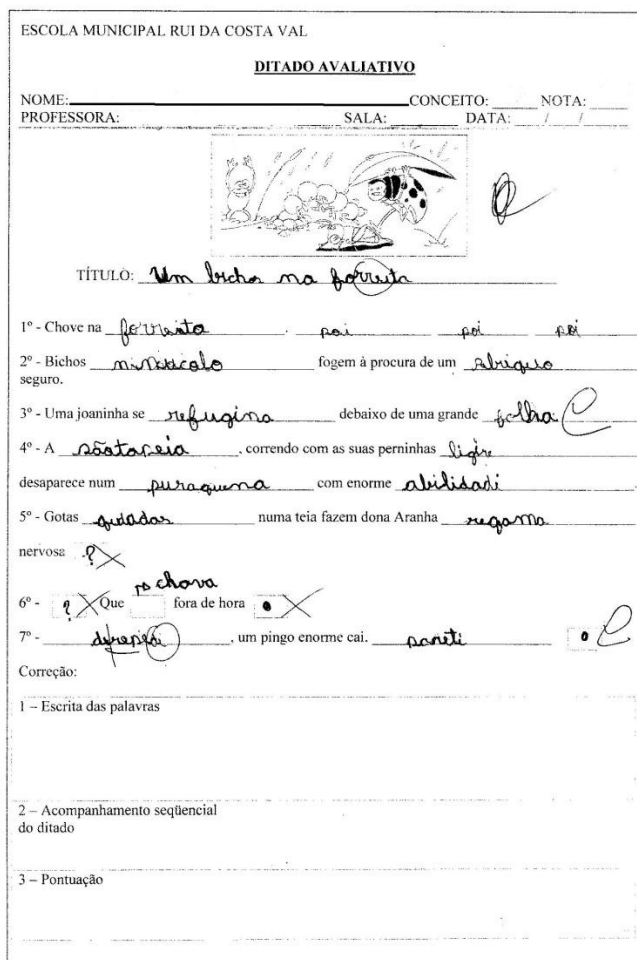 ESCOLA MUNICIPAL RUI DA COSTA VAL
DITADO AVALIATIVO
NOME: CONCEITO: NOTA:
PROFESSORA: SALA: DATA: / /
TÍTULO: Um bicho na forreita
1º - Chove na forreita . poi poi poi
2º - Bichos fogem à procura de um abriguo
seguro.
3º - Uma joaninha se refugina debaixo de uma grande folha
4º - A sãotapeia , correndo com as suas perninhas ligire
desaparece num puraquema com enorme abilidadi
5º - Gotas gudadas numa teia fazem dona Aranha regama
nervosa ?
chava
6º - ? Que fora de hora .
7º - , um pingo enorme cai. paneti .
Correção:
1 – Escrita das palavras
2 – Acompanhamento seqüencial
do ditado
3 – Pontuação